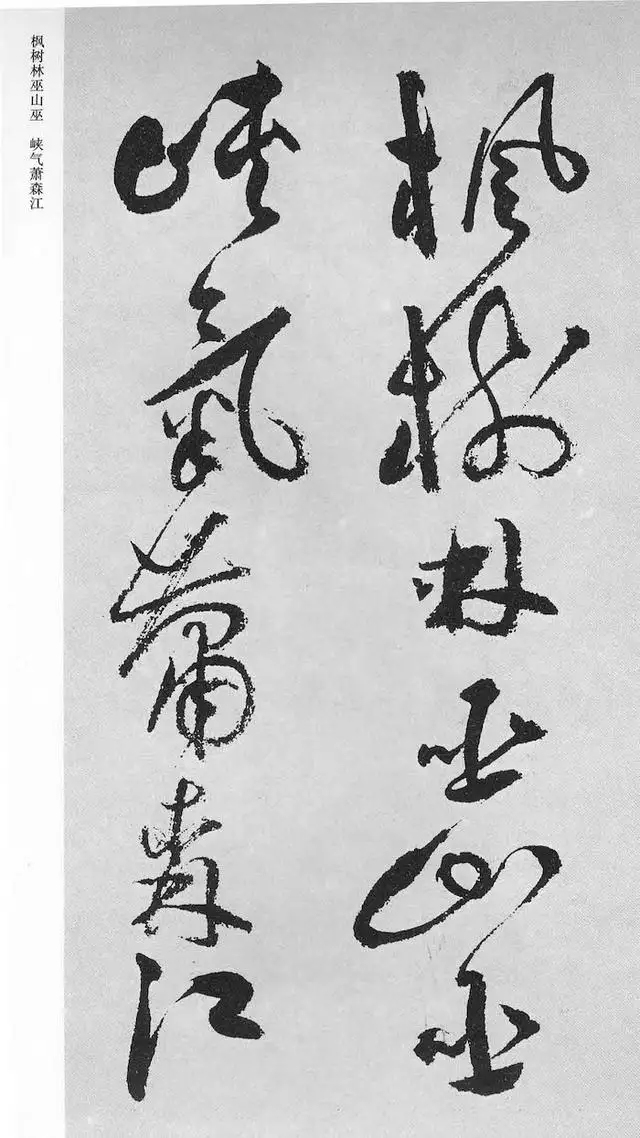 枫树林巫山巫 峡气萧森江
楓樹林巫山巫
峽氣蕭森江